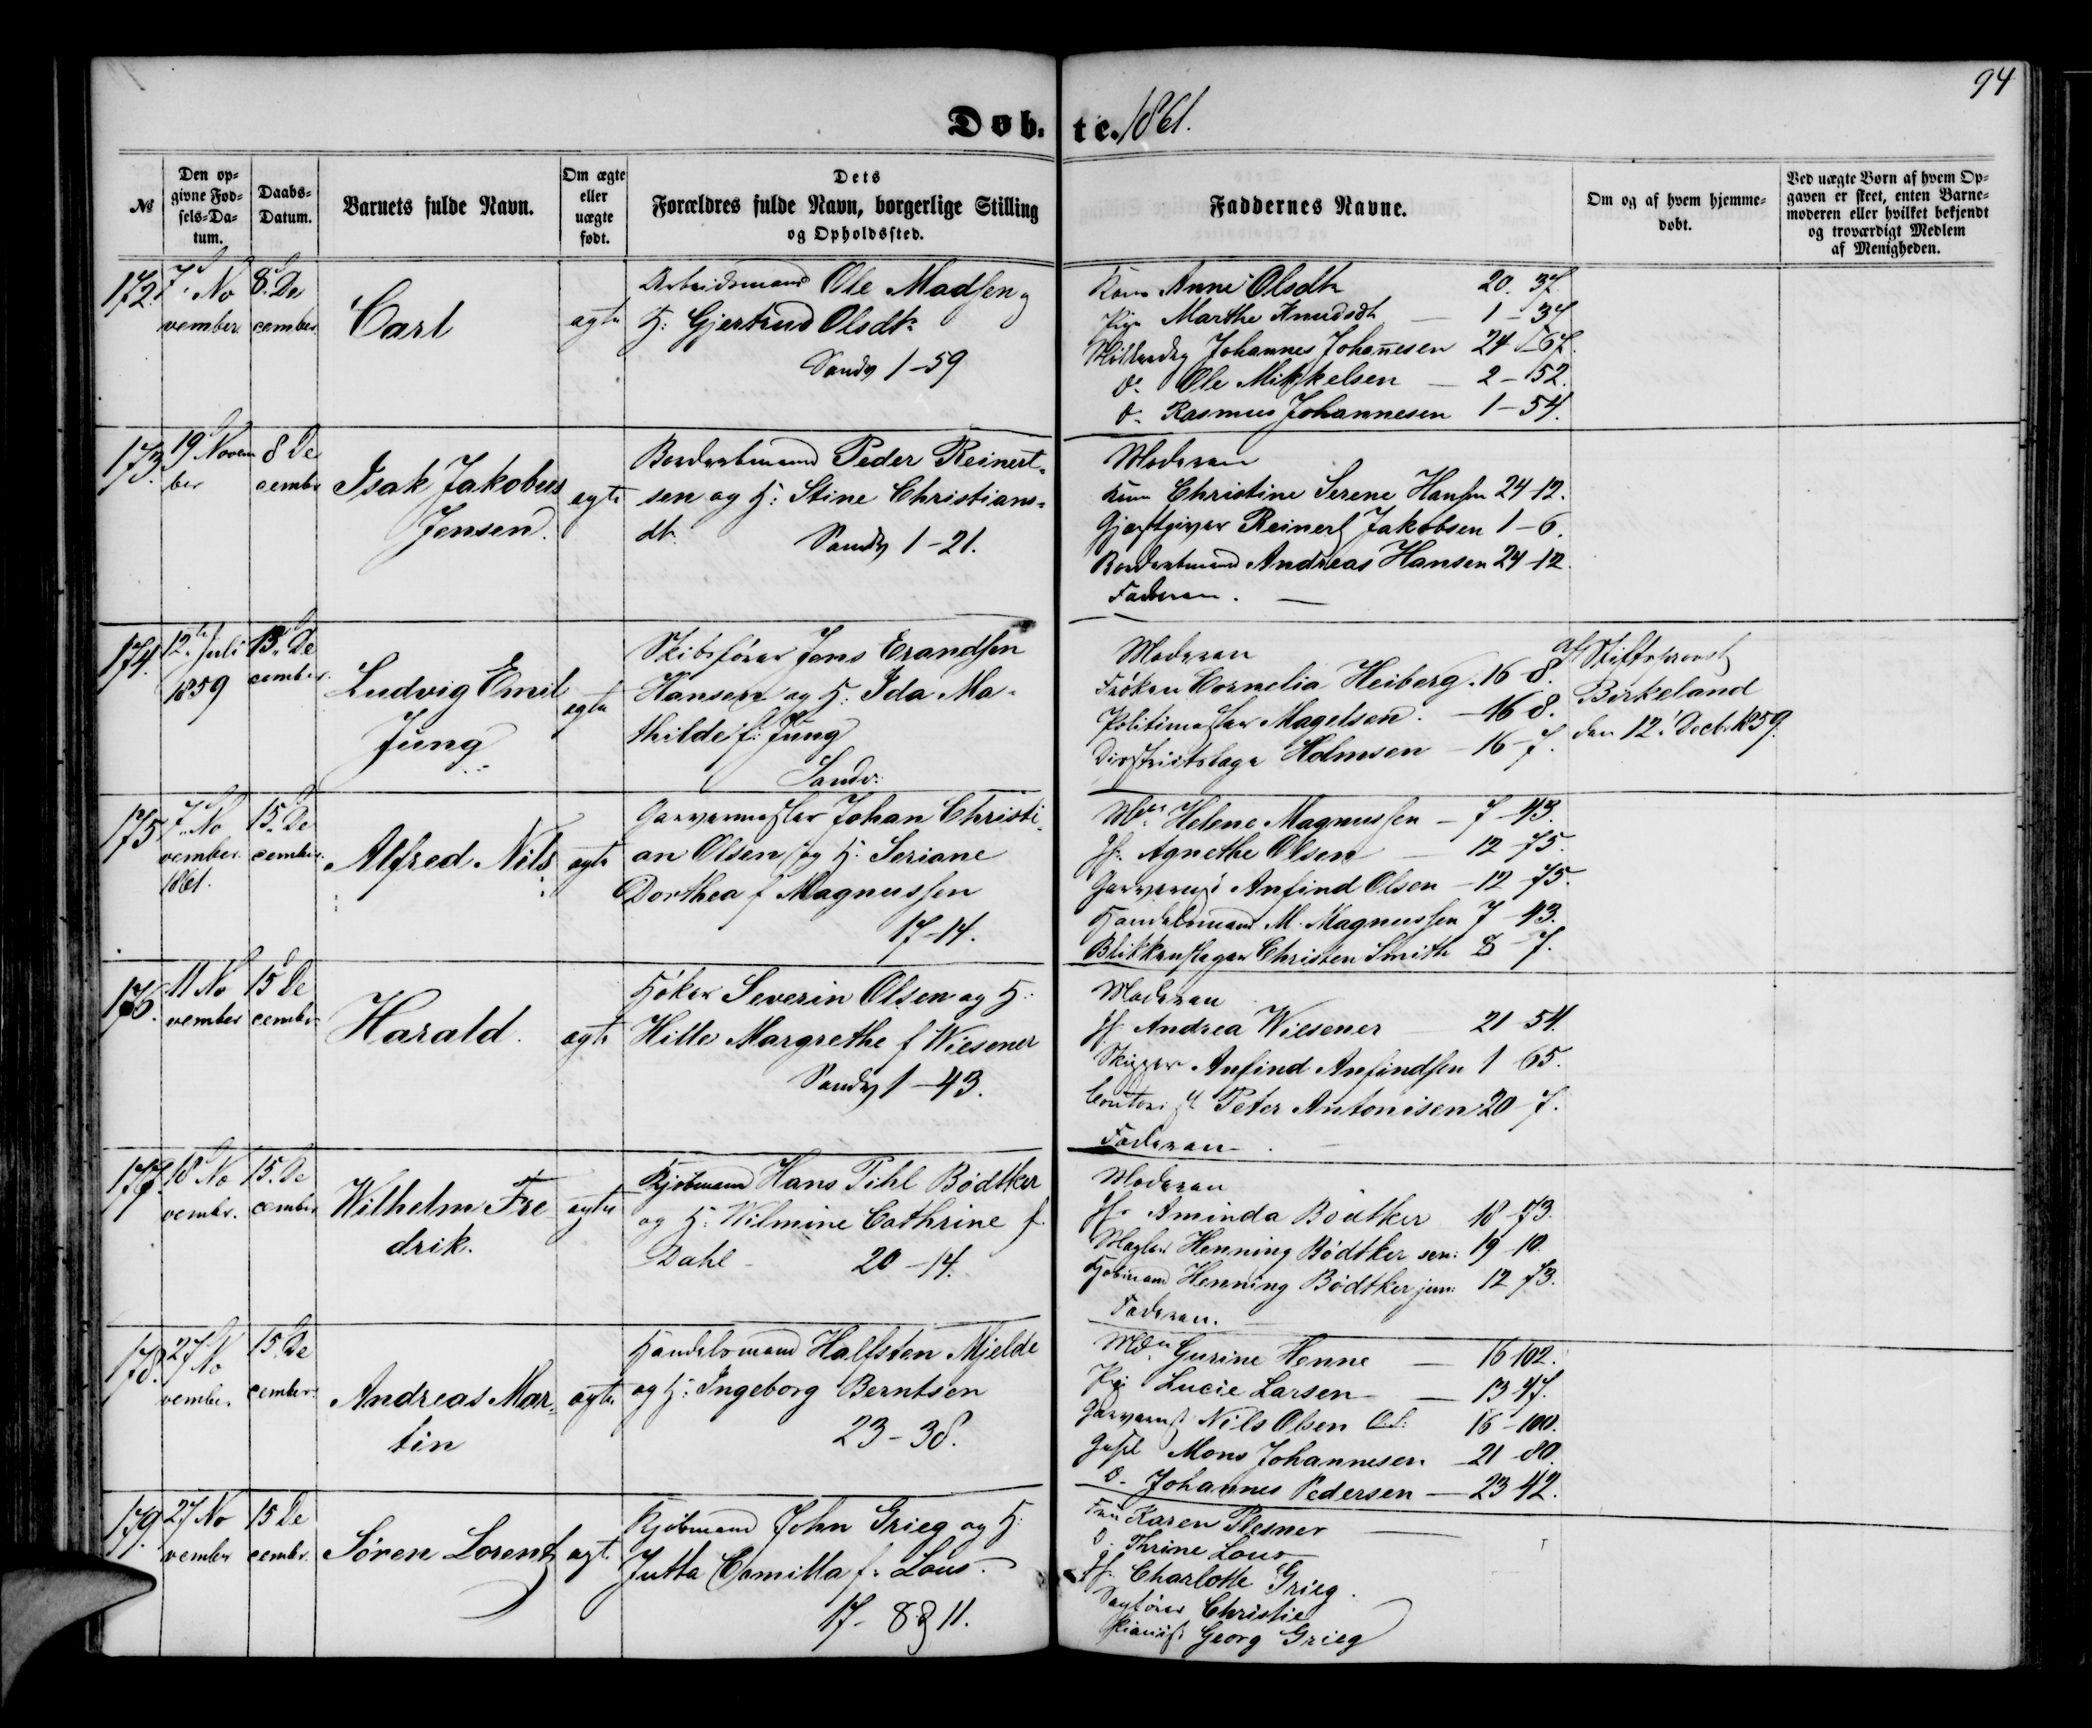 94
Døb-te. 1861.
№
Den op-
givne Fød-
sels-Da-
tum.
Daabs-
Datum.
Barnets fulde Navn.
Om ægte
eller
uægte
født.
Dets
Forældres fulde Navn, borgerlige Stilling
og Opholdssted.
Faddernes Navne.
Om og af hvem hjemme-
døbt.
Ved uægte Børn af hvem Op-
gaven er skeet, enten Barne-
moderen eller hvilket bekjendt
og troværdigt Medlem
af Menigheden.
172.
7. No
vember
8. De
cember
Carl
ægte
Arbeidsmand Ole Madsen og
H: Gjertrud Olsdtr
Sandv 1-59
Kone Anne Olsdtr 20. 37.
Pige Marthe Knudsdtr 1-37
Johannes Johannesen 24-67.
do Ole Mikkelsen 2-52.
do Rasmus Johannesen 1-54.
173.
19 Novem
ber
8 De
cember
Isak Jakobus
Jensen.
ægte
Bordarbmand Peder Reinert-
sen og H: Stine Christians-
dtr
Sandv 1-21.
Moderen
Kone Christine Serene Hansen 24-12.
Gjæstgiver Reinert Jakobsen 1-6.
Bordarbmand Andreas Hansen 24-12
Faderen.
174.
12te Juli
1859
13. De
cember.
Ludvig Emil
Jung
ægte
Skibsfører Jens Erandsen
Hansen og H. Ida Ma-
thilde f: Jung
Sandv:
Moderen
Frøken Cornelia Heiberg. 16-8.
Politimester Magelsen. -16-8.
Districtslæge Holmsen -16-7.
af Stiftsprovst
Birkeland
den 12. Decb. 1859.
175
7. No
vember
1861.
15. De
cember.
Alfred Nils
ægte
Garvermester Johan Christi-
an Olsen og H: Seriane
Dorthea f Magnussen
17-14.
Md Helene Magnussen - 7-43.
Jfr. Agnethe Olsen 12-75.
Anfind Olsen -12-75.
Handelsmand M. Magnussen 7-43.
Blikkenslager Christen Smith 8-7.
176.
11 No
vember
15 De
cember
Harald.
ægte
Høker Severin Olsen og H:
Hille Margrethe f Wiesener
Sandv 1-43.
Moderen
Jfr Andrea Wiesener 21-54.
Skipper Anfind Anfindsen 1 65.
Contorist Peter Antonisen 20-7.
Faderen
177.
18 No
vember.
15. De
cember
Wilhelm Fre
drik.
ægte
Kjøbmand Hans Pihl Bødtker
og H: Wilmine Cathrine f.
Dahl 20-14.
Moderen
Jfr Aminda Bødtker 18-73.
Mægler Henning Bødtker sen: 19-10.
Kjøbmand Henning Bødtker jun: 12 73.
Faderen.
178.
27 No
vember.
15. De
cember.
Andreas Mar-
tin
ægte
Handelsmand Halfsten Mjelde
og H: Ingeborg Berntsen
23-38.
Gurine Henne - 16-102.
Pige Lucie Larsen 13-47.
Nils Olsen 16-100.
Mons Johannesen 21-80.
do Johannes Pedersen - 23-42.
179.
27 No
vember
15 De
cember.
Søren Lorentz
ægte
Kjøbmand John Grieg og H:
Jutta Camilla f. Lous.
17- 8 & 11.
Fru Karen Plesner
do Thrine Lous
Jfr. Charlotte Grieg.
Sagfører Christie
Pianist Georg Grieg